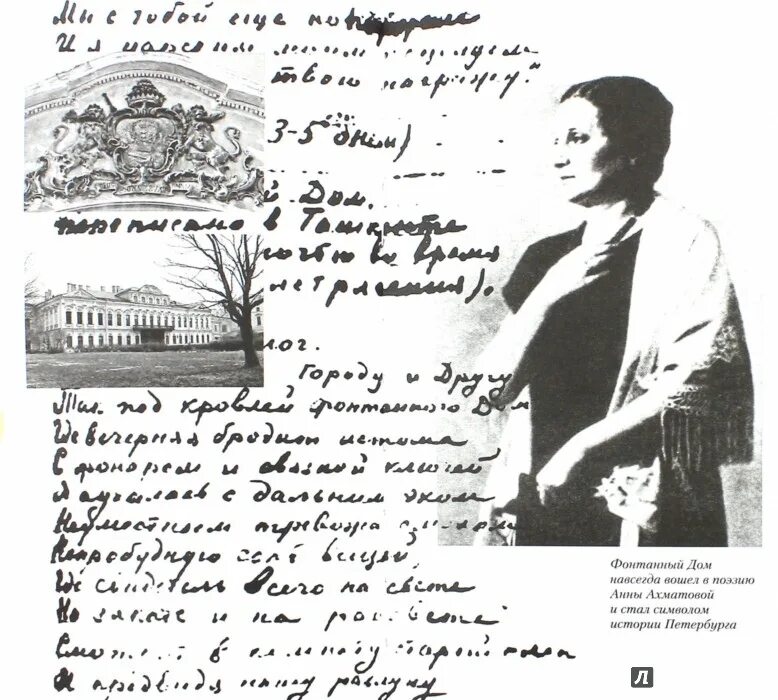 Мы с тобой еще
И я моим поцелуем
твою награжу."
3-5 дней)
й Дом.
написано в Ташкенте
ночью во время
лог.
Городу и Другу
Так под кровлей Фонтанного Дом
Где вечерняя бродит истома
С фонарем и связкой ключей
Я аукалась с дальним эхом
Неуместным тревожа смехом
Непробудную сонь вещей
Где свидетель всего на свете
На закате и на рассвете
Смотрит в комнату старый клен
И предвидя нашу разлуку
Фонтанный Дом
навсегда вошел в поэзию
Анны Ахматовой
и стал символом
истории Петербурга
Л